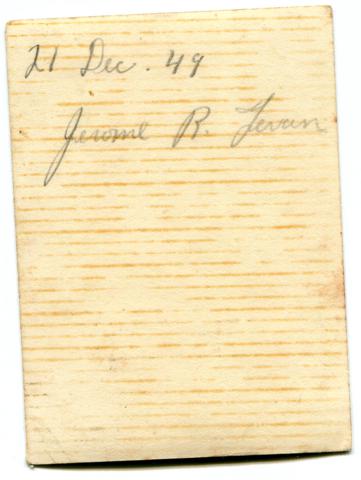 21 Dec. 49
Jerome R. Levan